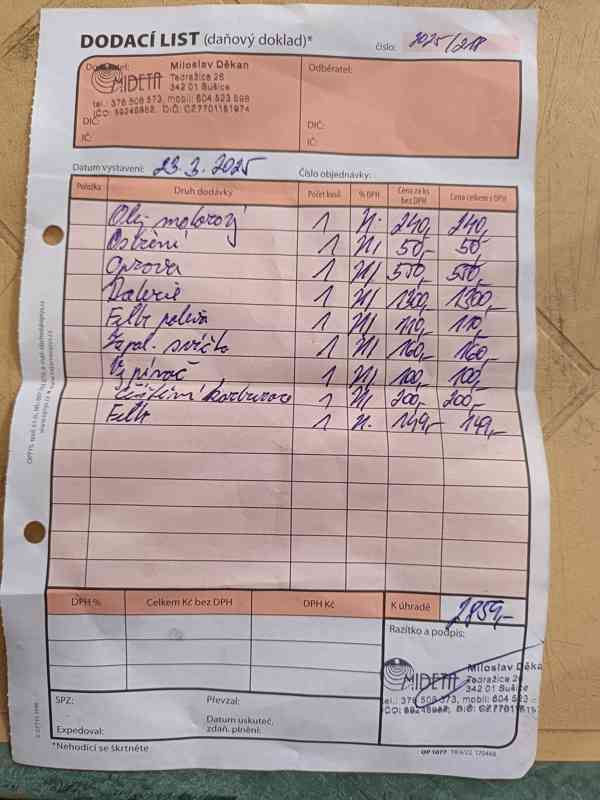 DODACÍ LIST (daňový doklad)*
číslo: 2025/218
Dodavatel:
MIDETA
Miloslav Děkan
Tedražice 26
342 01 Sušice
tel.: 376 508 573, mobil: 604 523 698
IČO: 69246882, DIČ: CZ7701161974
DIČ:
IČ:
Odběratel:
DIČ:
IČ:
Datum vystavení: 23. 3. 2025 Číslo objednávky:
Položka Druh dodávky Počet kusů % DPH Cena za ks bez DPH Cena celkem s DPH
Olej motorový 1 N. 240,- 240,-
Ostření 1 N 50,- 50,-
Oprava 1 N 550,- 550,-
Baterie 1 N 1300,- 1300,-
Filtr paliva 1 N 110,- 110,-
Zapal. svíčka 1 N 160,- 160,-
Vypínač 1 N 100,- 100,-
čištění karburace 1 N 200,- 200,-
Filtr 1 N. 149,- 149,-
DPH % Celkem Kč bez DPH DPH Kč K úhradě 2859,-
Razítko a podpis:
MIDETA
Miloslav Děka
Tedražice 26
342 01 Sušice
SPZ:
Expedoval:
Převzal:
Datum uskuteč.
zdaň. plnění:
*Nehodící se škrtněte
OP 1077